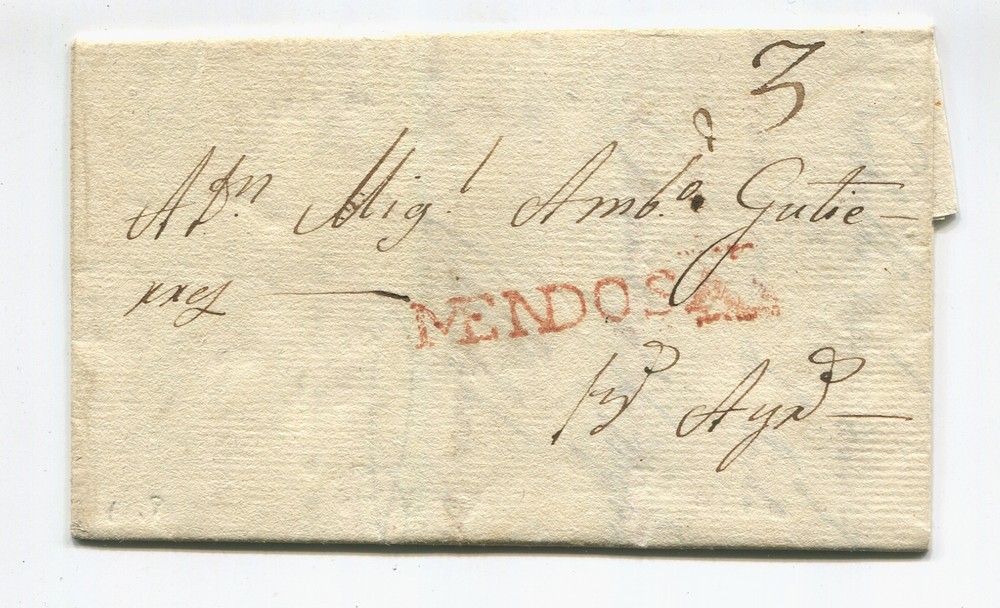 3
A Dn Migl Ambo Gutie-
rrez
MENDOSA
Bs Ayrs